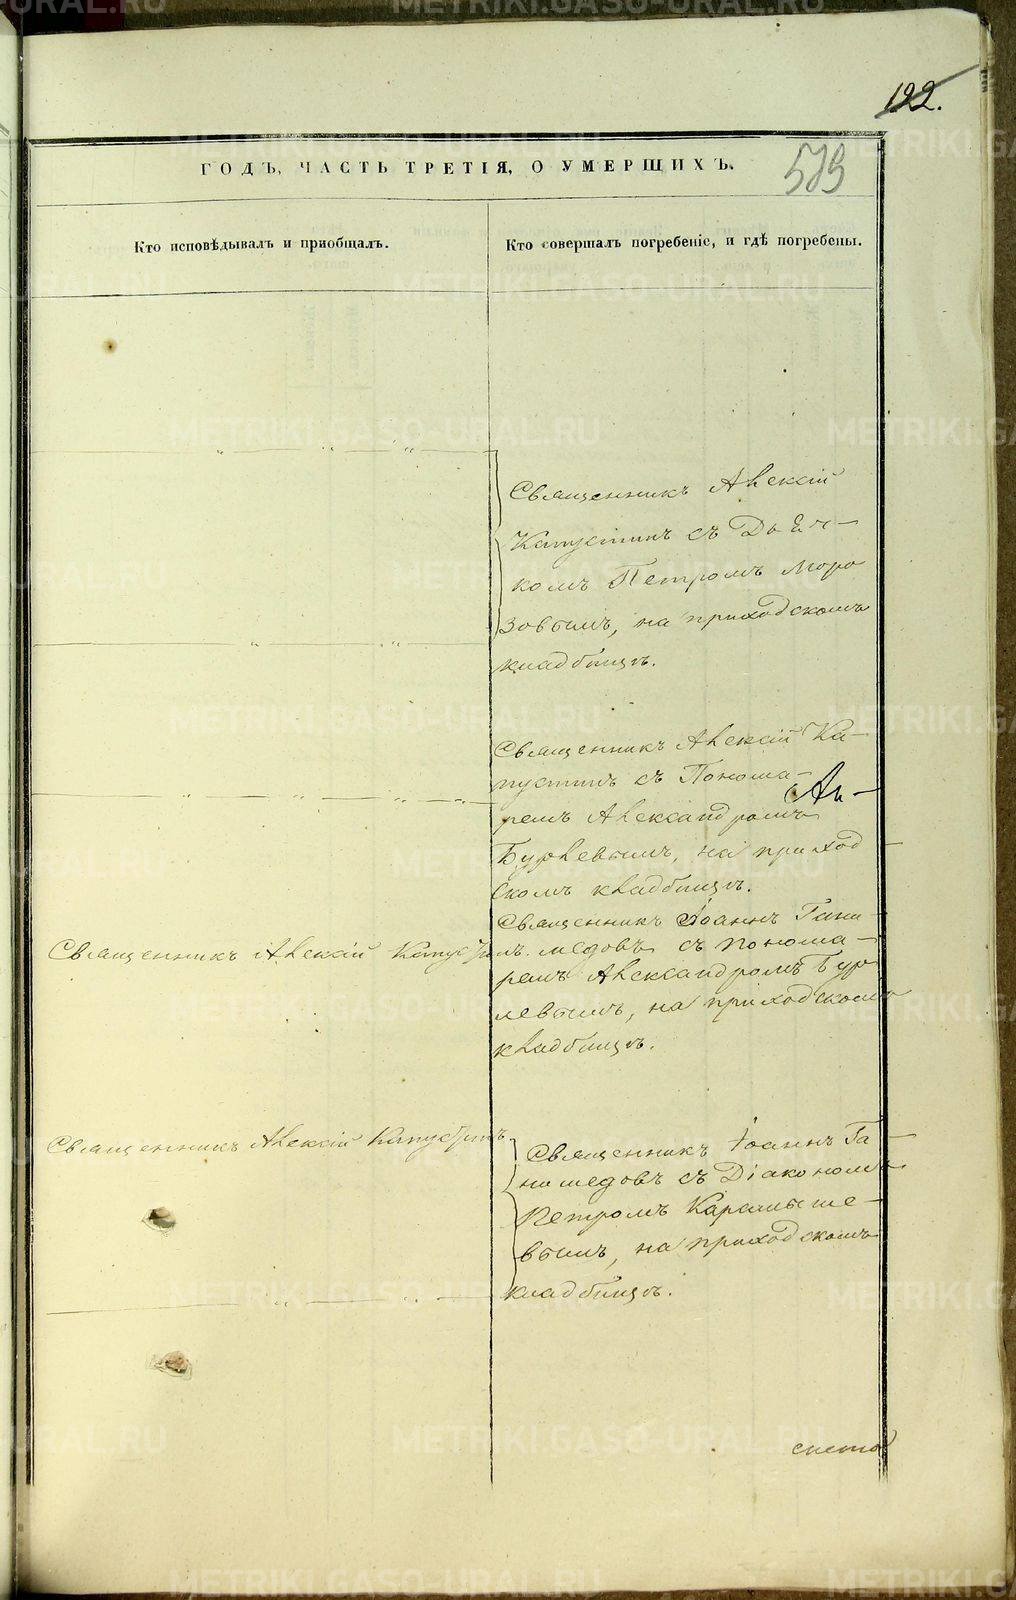 122.
579
ГОДЪ, ЧАСТЬ ТРЕТІЯ, О УМЕРШИХЪ.
Кто исповѣдывалъ и пріобщалъ.
Кто совершалъ погребеніе, и гдѣ погребены.
Священникъ Алексій
Капустинъ съ Дьяч-
комъ Петромъ Моро
зовымъ, на приходскомъ
кладбищѣ.
Священникъ Алексій Ка-
пустинъ съ Понома-
ремъ Александромъ
Бурлевымъ, на приход
скомъ кладбищѣ.
Священникъ Алексій Капустинъ.
Священникъ Іоаннъ Гани-
медовъ съ понома-
ремъ Александромъ Бур
левымъ, на приходскомъ
кладбищѣ.
Священникъ Алексій Капустинъ
Священникъ Іоаннъ Га
нимедовъ съ Діакономъ
Петромъ Карамыше-
вымъ, на приходскомъ
кладбищѣ.
METRIKI.GASO-URAL.RU